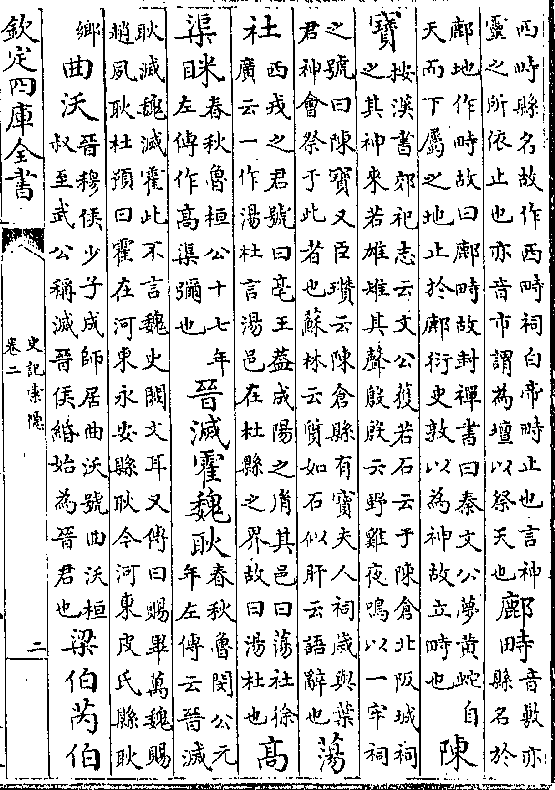 西畤縣名故作西畤祠白帝畤止也言神
靈之所依止也亦音市謂為壇以祭天也
鄜畤
音敷亦
縣名於
鄜地作畤故曰鄜畤故封禪書曰秦文公夢黃蛇自
天而下屬之地止於鄜衍史敦以為神故立畤也
陳
寶
按漢書郊祀志云文公獲若石云于陳倉北阪城祠
之其神來若雄雉其聲殷殷云野雞夜鳴以一牢祠
之號曰陳寶又臣瓚云陳倉縣有寶夫人祠歲與葉
君神會祭于此者也蘇林云質如石似肝云語辭也
蕩
社
西戎之君號曰亳王葢成陽之胄其邑曰蕩社徐
廣云一作湯杜言湯邑在杜縣之界故曰湯杜也
高
渠眯
春秋魯桓公十七年
左傳作高渠彌也
晉滅霍魏耿
春秋魯閔公元
年左傳云晉滅
耿滅魏滅霍此不言魏史闕文耳又傳曰賜畢萬魏賜
趙夙耿杜預曰霍在河東永安縣耿今河東皮氏縣耿
鄉
曲沃
晉穆侯少子成師居曲沃號曲沃桓
叔至武公稱滅晉侯緡始為晉君也
梁伯芮伯
欽定四庫全書
史記索隱
卷二
二